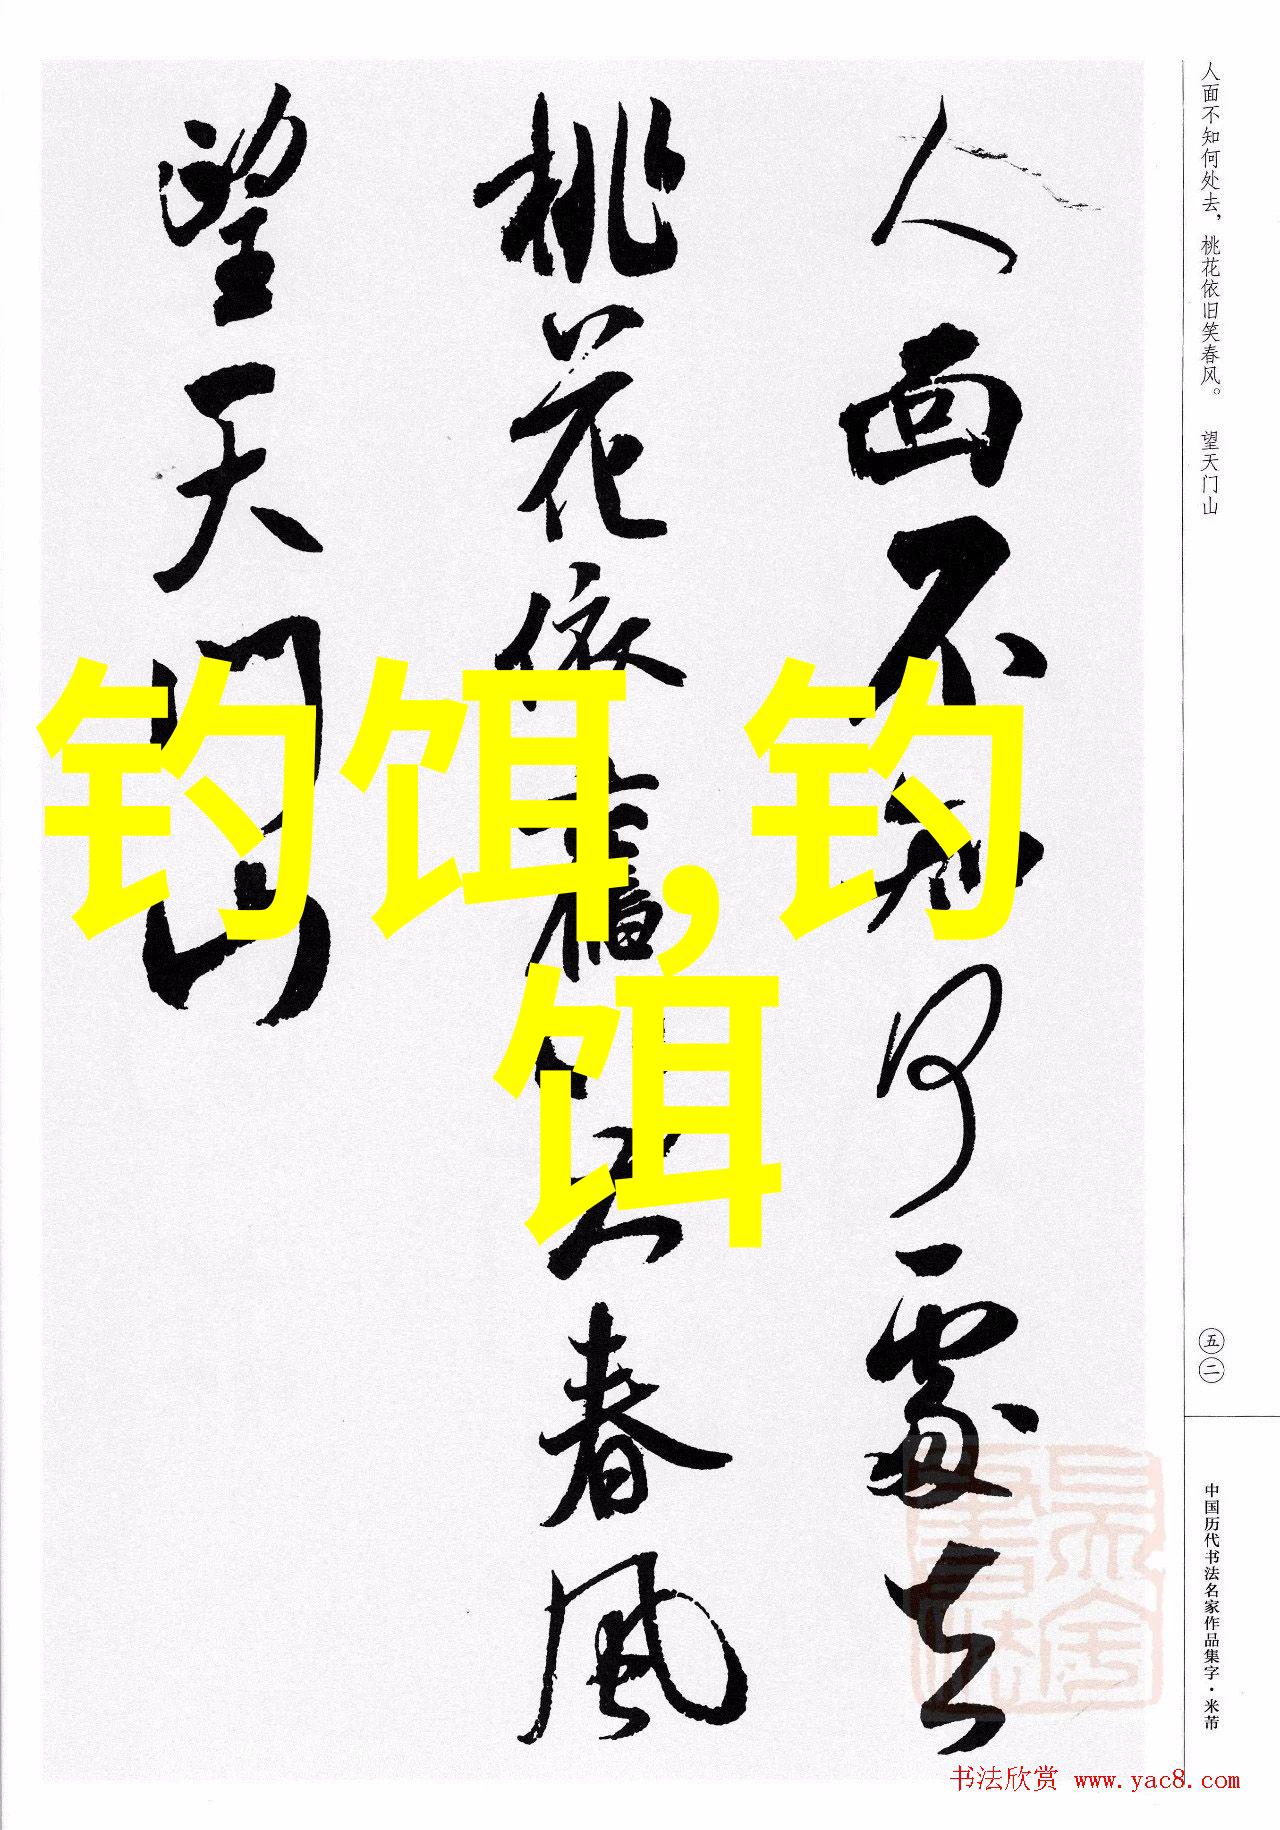 人面不知何处去，桃花依旧笑春风。　望天门山
人面不知何處去
桃花依舊笑春風
望天門山
钓饵,钓
饵
五二
中国历代书法名家作品集字·米芾
书法欣赏 www.yac8.com